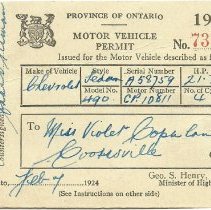 PROVINCE OF ONTARIO 19
MOTOR VEHICLE
PERMIT
No. 73
Issued for the Motor Vehicle described as
Make of Vehicle Style Serial Number H.P.
Chevrolet Sedan A58759 21
Model No. Motor Number No. C
490 CP.10811 4
To Miss Violet Copelan
Cooksville
to Feb 4 1924
Geo. S. Henry,
Minister of High
(See Instructions on other side)
Countersigned